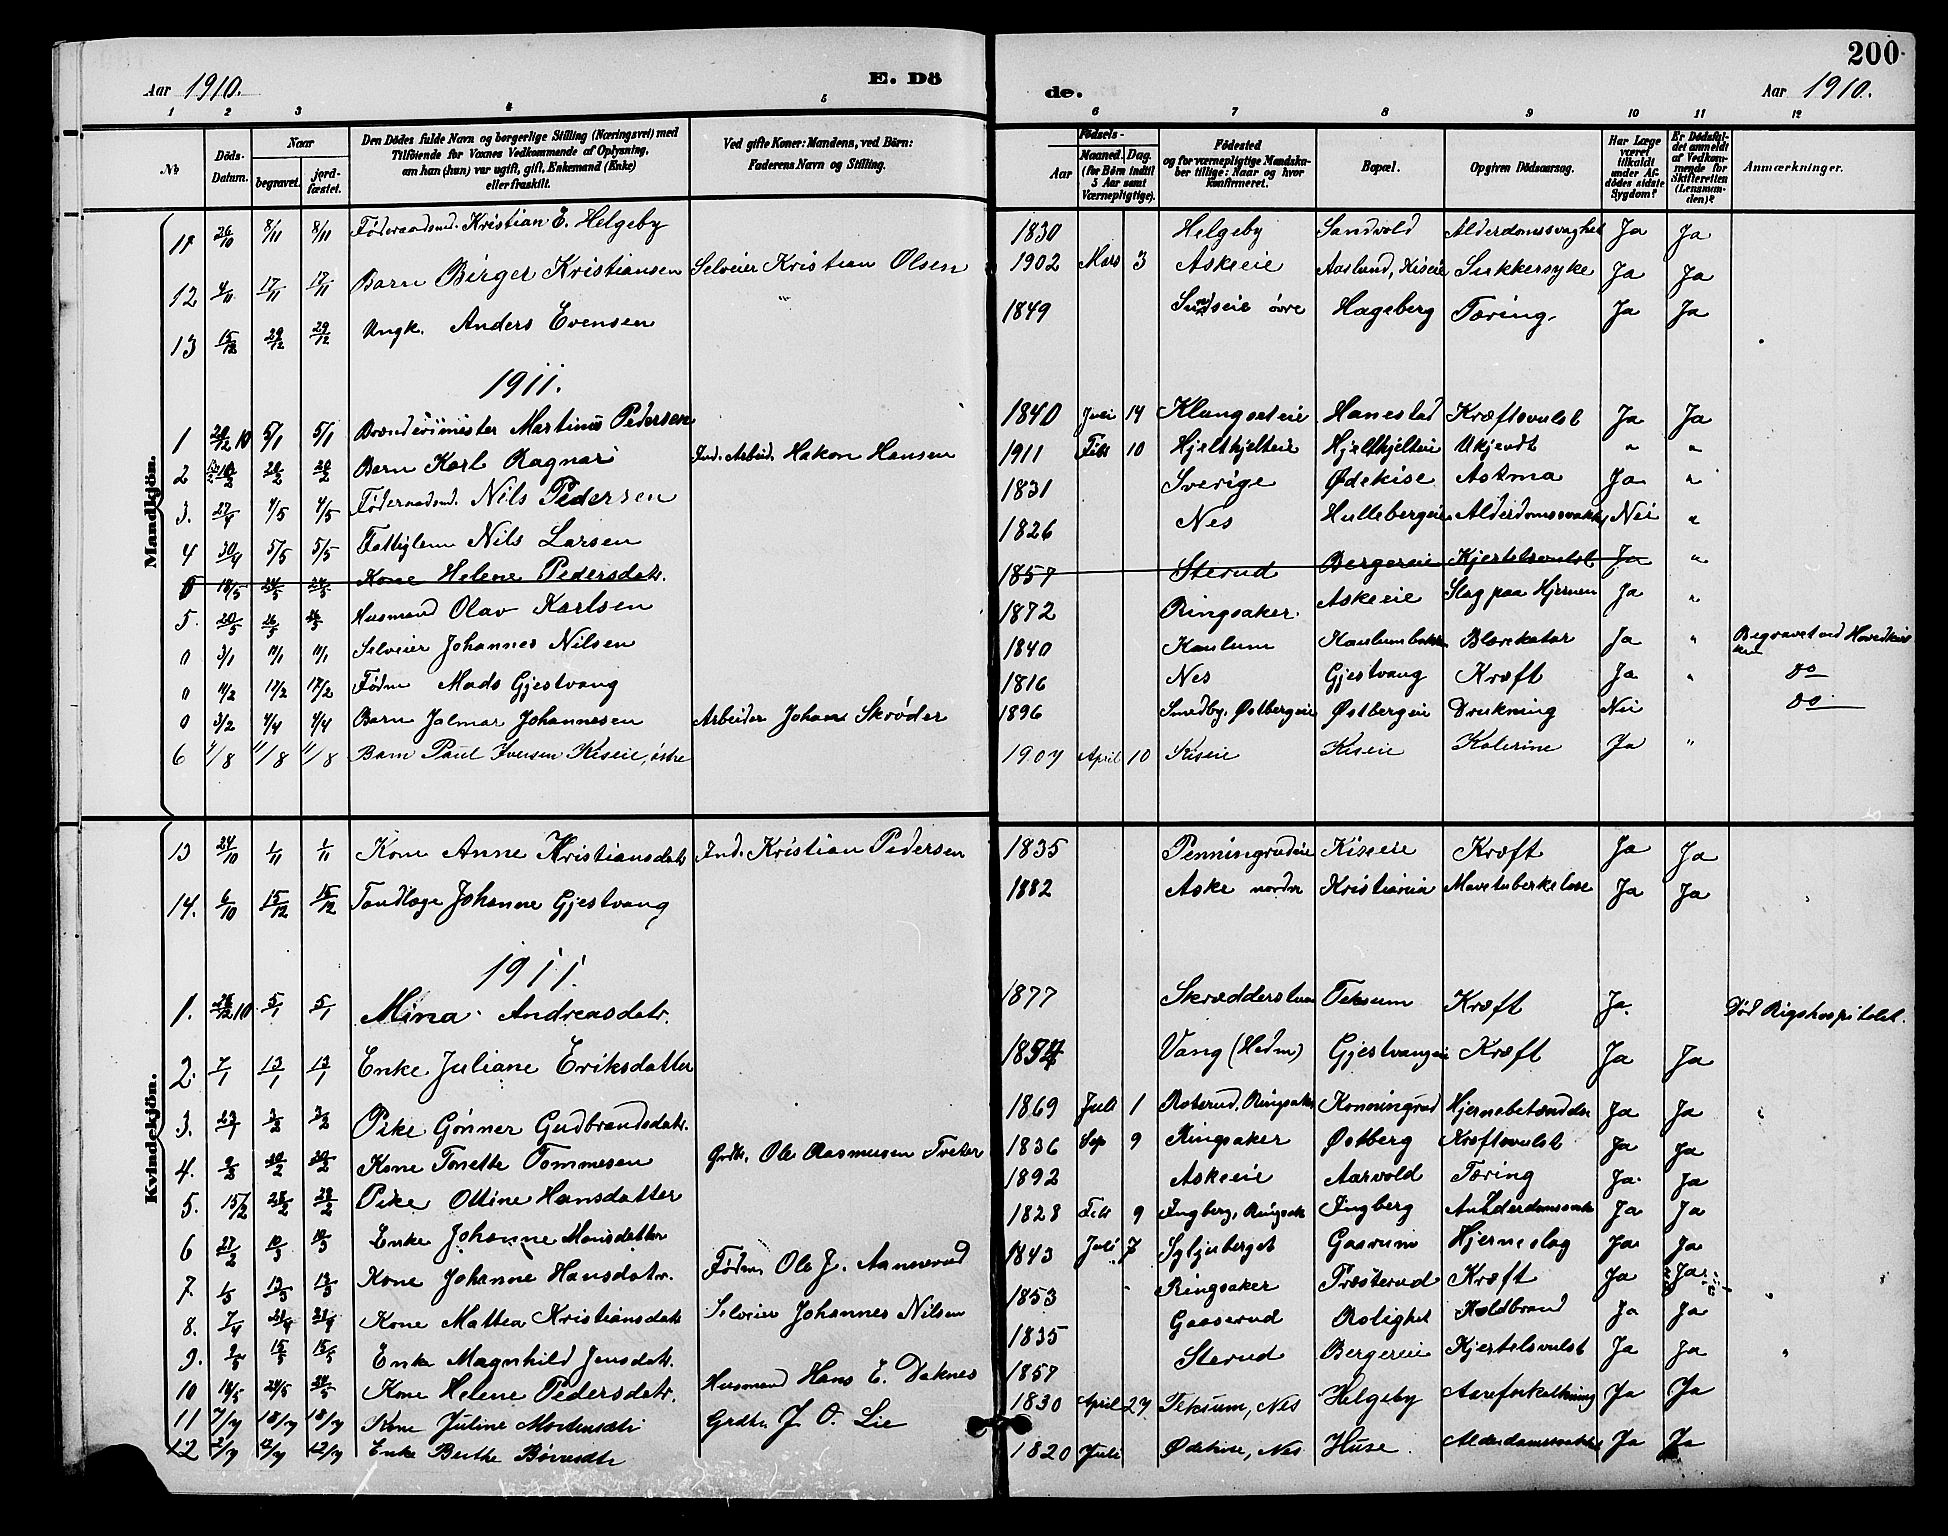 200
Aar 1910. E. Dö de. Aar 1910.
1 2 3 4 5 6 7 8 9 10 11 12
No
Döds-Datum.
Naar
begravet. jordfæstet.
Den Dödes fulde Navn og borgerlige Stilling (Næringsvei) med Tilföiende for Voxnes Vedkommende af Oplysning, om han (hun) var ugift, gift, Enkemand (Enke) eller fraskilt.
Ved gifte Koner: Mandens, ved Börn: Faderens Navn og Stilling.
Födsels-
Aar
Maaned. Dag.
(for Börn indtil 5 Aar samt Værnepligtige).
Födested og for værnepligtige Mandskaber tillige: Naar og hvor konfirmeret.
Bopæl.
Opgiven Dödsaarsag.
Har Læge været tilkaldt under Afdödes sidste Sygdom?
Er Dödsfaldet anmeldt af Vedkommende for Skifteretten (Lensmanden)?
Anmærkninger.
Mandkjön.
11 26/10 8/11 8/11 Føderaadsmd. Kristian E. Helgeby 1830 Helgeby Sandvold Alderdomssvaghet Ja Ja
12 4/11 17/11 17/11 Barn Birger Kristiansen Selveier Kristian Olsen 1902 Mars 3 Askeeie Aaslund, Kiseie Sukkersyke Ja Ja
13 15/12 29/12 29/12 Ungk. Anders Evensen " 1849 Sundseie øvre Hageberg Tæring. Ja Ja
1911.
1 28/12 10 5/1 5/1 Brænderimester Martinus Pedersen 1840 Juli 14 Klungseteie Hanestad Kræftsvulst Ja Ja
2 20/2 20/2 Barn Karl Ragnar Ind. Arbeid. Hakon Hansen 1911 Feb 10 Hjeltkjelteie Hjeltkjelteie Ukjendt " "
3. 27/4 4/5 4/5 Føderaadsmd. Nils Pedersen 1831 Sverige Ødekise Astma Ja "
4 30/4 5/5 5/5 Fattiglem Nils Larsen 1826 Nes Hullebergeie Alderdomssvakh. Nei "
6 18/5 24/5 24/5 Kone Helene Pedersdatr. 1857 Sterud Bergereie Kjertelsvulst Ja "
5. 20/5 26/5 26/5 Husmand Olav Karlsen 1872 Ringsaker Askeeie Slag paa Hjernen Ja "
0 3/1 11/1 11/1 Selveier Johannes Nilsen 1840 Kaulum Kaulumbakke Blærekatar Ja " Begravet ved Hovedkirken
0 11/2 17/2 17/2 Fødm Mads Gjestvang 1816 Nes Gjestvang Kræft Ja " do
0 3/2 4/4 4/4 Barn Jalmar Johannesen Arbeider Johans Skrøder 1896 Smedby, Østbergeie Østbergeie Drukning Nei do
6 4/8 11/8 11/8 Barn Paul Iversen Kiseie, østre 1907 April 10 Kiseie Kiseie Kolerine Ja "
Kvindekjön.
13 24/10 1/11 1/11 Kone Anne Kristiansdatr Ind. Kristian Pedersen 1835 Penningrudeie Kiseeie Kræft Ja Ja
14. 6/10 15/12 15/12 Tandlæge Johanne Gjestvang 1882 Aske nordre Kristiania Mavetuberkelose Ja Ja
1911
1. 28/12 10 5/1 5/1 Mina Andreasdatr. 1877 Skrædderstuen Teksum Kræft Ja. Død Rigshospitalet.
2. 7/1 13/1 13/1 Enke Juliane Eriksdatter 1854 Vang (Hedm) Gjestvangeie Kræft Ja Ja
3. 23/1 3/2 3/2 Pike Gønner Gudbrandsdatr. 1869 Juli 1 Roterud, Ringsaker Konningrud Hjernebetændelse Ja Ja
4. 9/2 20/2 20/2 Kone Tonette Tommesen Grdbr. Ole Rasmusen Tveter 1836 Sep 9 Ringsaker Østberg Kræftsvulst Ja Ja
5. 15/2 28/2 28/2 Pike Ottine Hansdatter 1892 Askeeie Aarvold Tæring Ja. Ja
6 27/2 10/3 10/3 Enke Johanne Monsdatter 1828 Feb 9 Ingberg, Ringsak Ingberg Alderdomssvakh Ja Ja
7. 1/3 13/3 13/3 Kone Johanne Hansdatr. Fødm. Ole J. Aamerud 1843 Juli 7 Syljuberget Gaarum Hjerneslag Ja Ja
8. 7/4 23/4 23/4 Kone Mathea Kristiansdatr Selveier Johannes Nilsen 1853 Ringsaker Præsterud Kræft Ja Ja
9. 9/5 15/5 15/5 Enke Magnhild Jensdatr. 1835 Gaaserud Rolighet Koldbrand Ja Ja
10 18/5 24/5 24/5 Kone Helene Pedersdatr. Husmand Hans E. Daknes 1857 Sterud Bergereie Kjertelsvulst Ja Ja
11 7/7 18/7 18/7 Kone Juline Mortensdtr Grdbr. J. O. Lie 1830 April 27 Teksum, Nes Helgeby Aareforkalkning Ja Ja
12 2/7 12/7 12/7 Enke Berthe Børresdtr 1820 Juli Ødekise, Nes Huse. Alderdomssvakhet Ja Ja